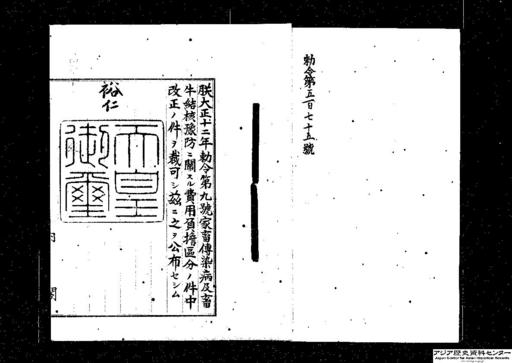 勅令第五百七十五號
朕大正十二年勅令第九號家畜傳染病及畜
牛結核豫防ニ關スル費用負擔區分ノ件中
改正ノ件ヲ裁可シ茲ニ之ヲ公布セシム
裕仁
天皇
御璽
内閣
アジア歴史資料センター
Japan Center for Asian Historical Records